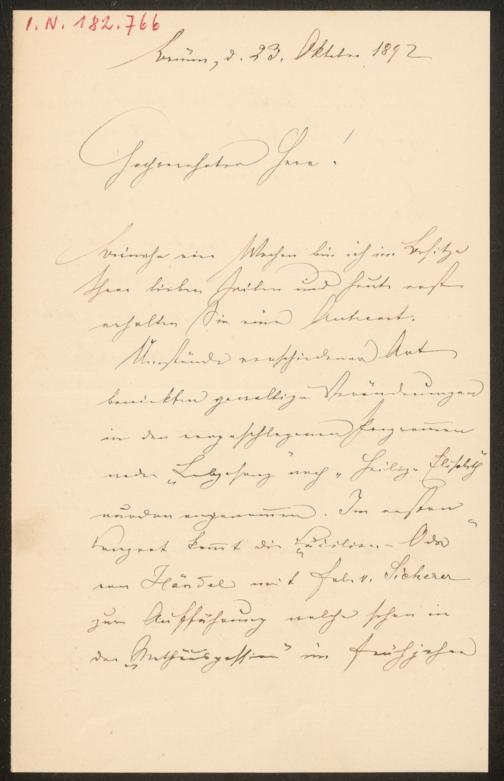 I.N. 182.766
Brünn, d. 23. Oktober 1892
Hochverehrter Herr!
Beinahe eine Woche bin ich im Besitze
Ihrer lieben Zeilen und heute erst
erhalten Sie eine Antwort.
Umstände verschiedener Art
bewirkten gewaltige Veränderungen
in den vorgeschlagenen Programmen
weder „Lobgesang" noch „Heilige Elisabeth"
wurden angenommen. Im ersten
Konzert kommt die „Cäcilien-Ode"
von Händel mit Frl. v. Sicherer
zur Aufführung welche schon in
der „Mathäuspassion" im Frühjahre